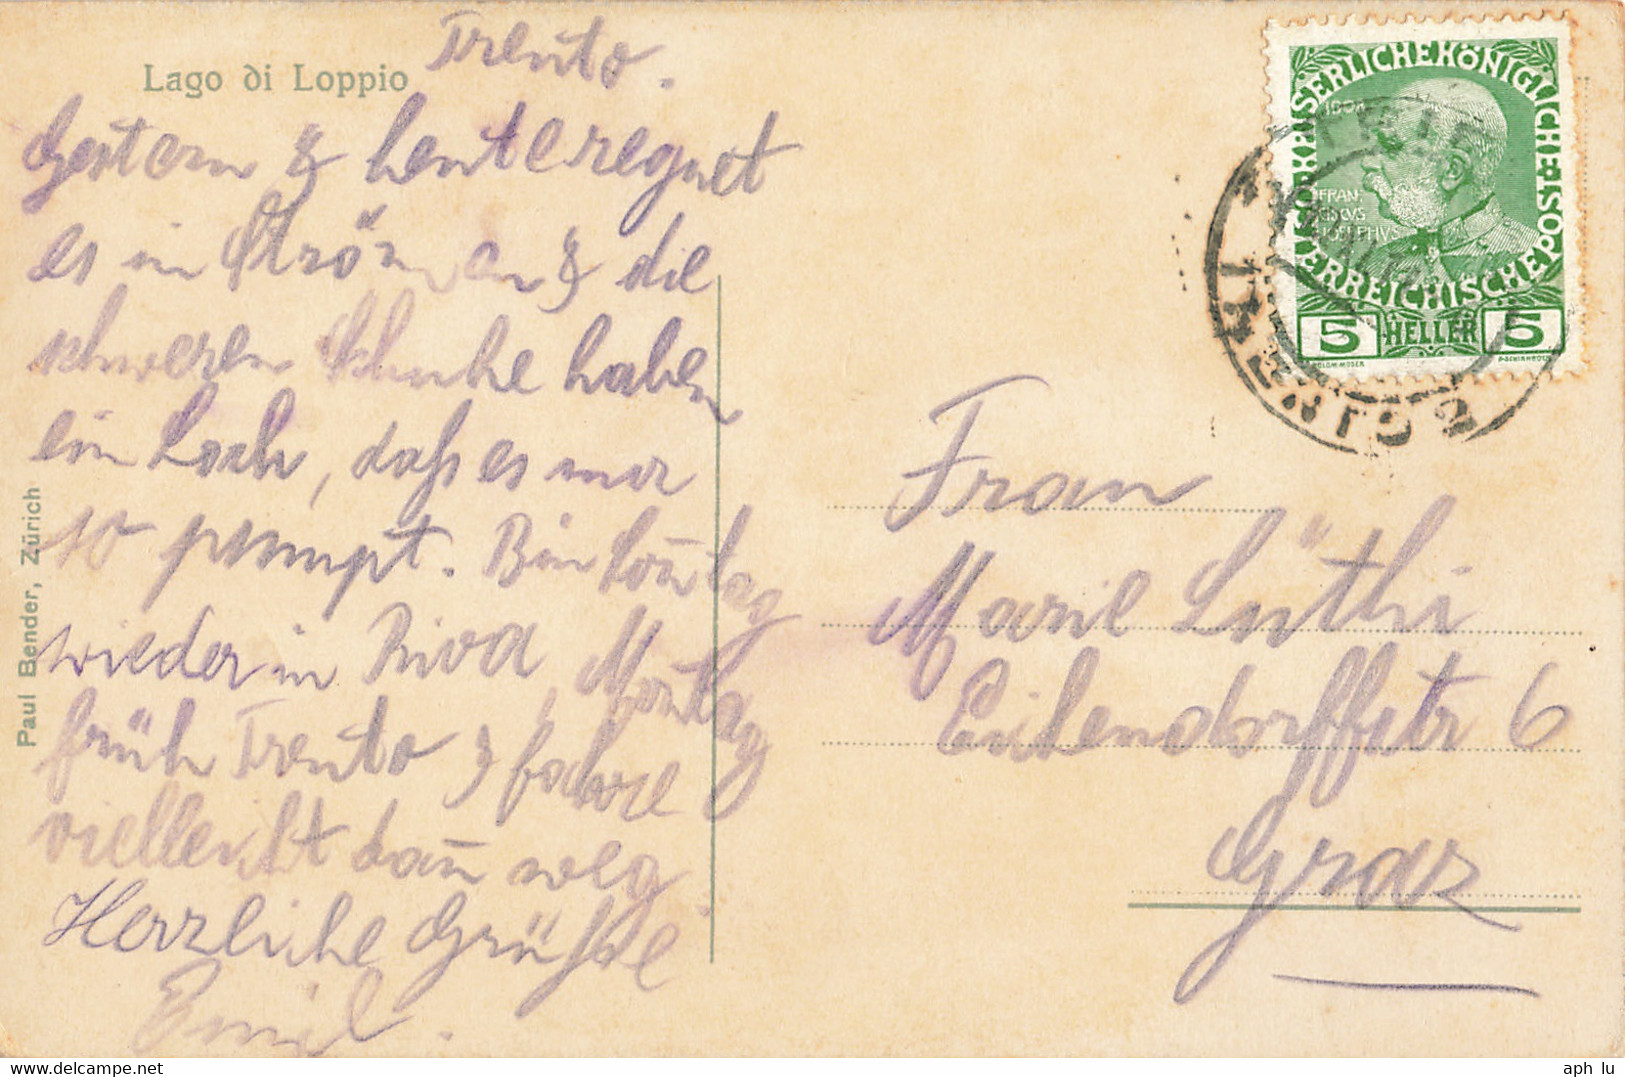 Lago di Loppio
Trento.
Gestern & heute regnet
es in Strömen & die
schweren Schuhe haben
ein Loch, dass es nur
so pumpt. Bin Son̄tag
wieder in Riva, Mon̄tag
früh Trento & fahre
vielleicht dan̄ weg.
Herzliche Grüsse
Emil.
Paul Bender, Zürich
KAISERLICHEKÖNIGLICHE
ÖSTERREICHISCHE POST
1908
FRAN
IOSEPHVS
5 HELLER 5
TRENTO 2
Frau
Marie Lüthi
Eichendorffstr 6
Graz
aph lu